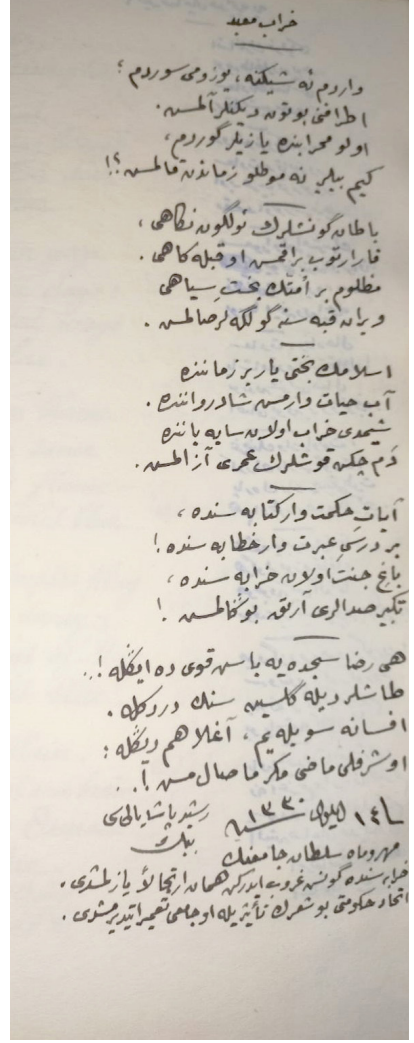 خراب معبد
واردم ئه شیكنه، یوزومی سوردم ؛
اطرافنی بوتون دیكنلر آلمس.
اولو محرابنده یازیلر گوردم،
كیم بیلیر نه موطلو زماندن قالمس؟!
باطان گونشلرك ئولگون نگاهی،
قارارتوب براقمس او قبله كاهی.
مظلوم بر أمتك بخت سیاهی
ویران قبه سنه گولگه لر صالمس.
اسلامك بختی یار بر زماننده
آب حیات وارمس شادرواننده.
شیمدی خراب اولان سایه باننده
دم چكن قوشلرك عمری آزالمس.
آیات حكمت وار كتابه سنده،
بر درس عبرت وار خطابه سنده!
باغ جنت اولان خرابه سنده،
تكبیر صدالری آرتق بوڭالمس !
هی رضا سجده یه باش قوی ده ایڭله !..
طاشلر دیله گلسین سنك دردكله.
افسانه سویله یم، آغلا هم دیڭله :
او شرفلی ماضی مكر ماصال مس !..
١٤ ایلول ١٣٣٠
رشید پاشا یالیسی
ببك
مهروماه سلطان جامعنك
خرابه سنده گونش غروب ایدركن همان ارتجالاً یازلمشدی.
اتحاد حكومتی بو شعرك تأثیریله او جامعی تعمیر ایتدیرمشدی.